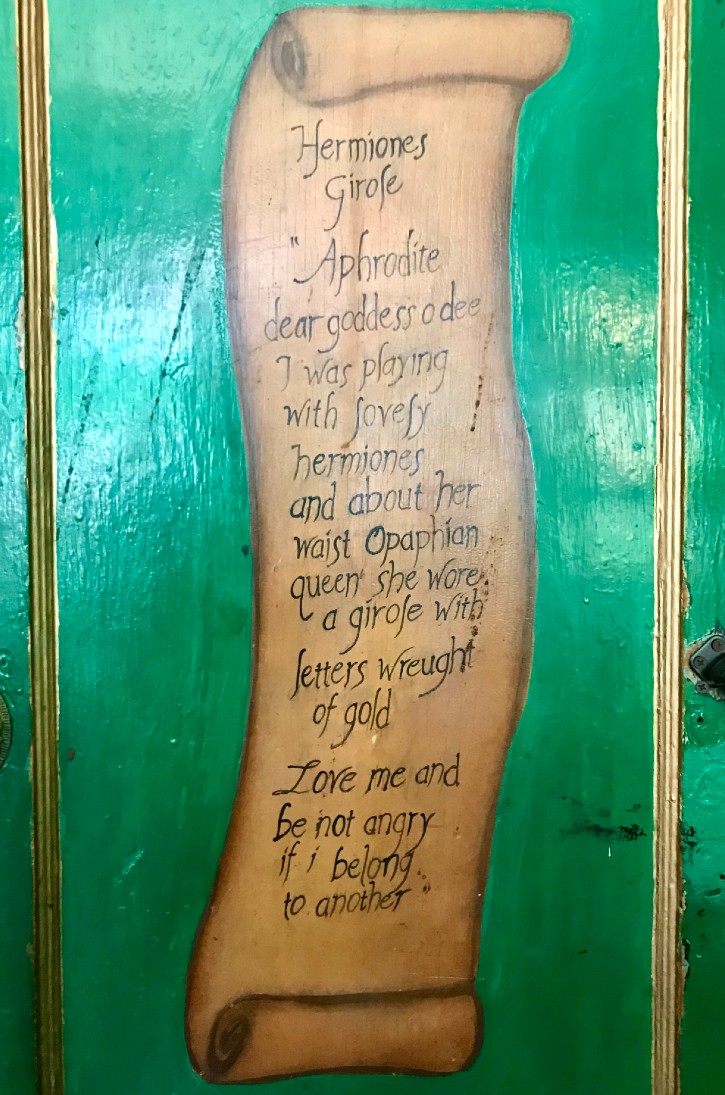 Hermiones
Girose
"Aphrodite
dear goddess o dee
I was playing
with lovely
hermiones
and about her
waist Opaphian
queen she wore
a girose with
letters wreught
of gold
Love me and
be not angry
if i belong
to another"